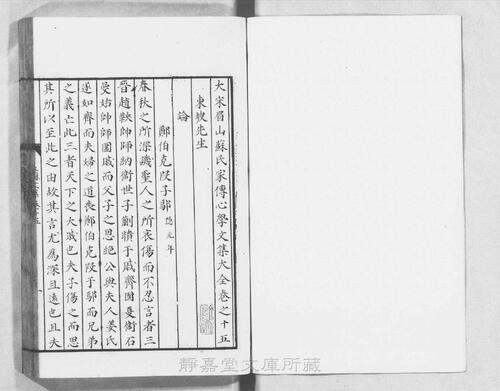 大宋眉山蘇氏家傳心學文集大全卷之十五
東坡先生
論
鄭伯克段于鄢 隱元年
春秋之所深譏聖人之所哀傷而不忍言者三
晉趙鞅帥師納衛世子蒯聵于戚齊國夏衛石
曼姑帥師圍戚而父子之恩絕公與夫人姜氏
遂如齊而夫婦之道喪鄭伯克段于鄢而兄弟
之義亡此三者天下之大戚也夫子傷之而思
其所以至此之由故其言尤為深且遠也且夫
靜嘉堂文庫所藏